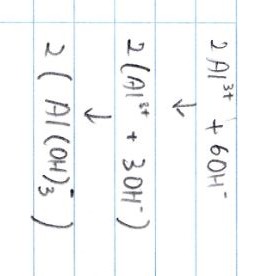 2Al³⁺ + 6OH⁻
→
2(Al³⁺ + 3OH⁻)
→
2(Al(OH)₃)